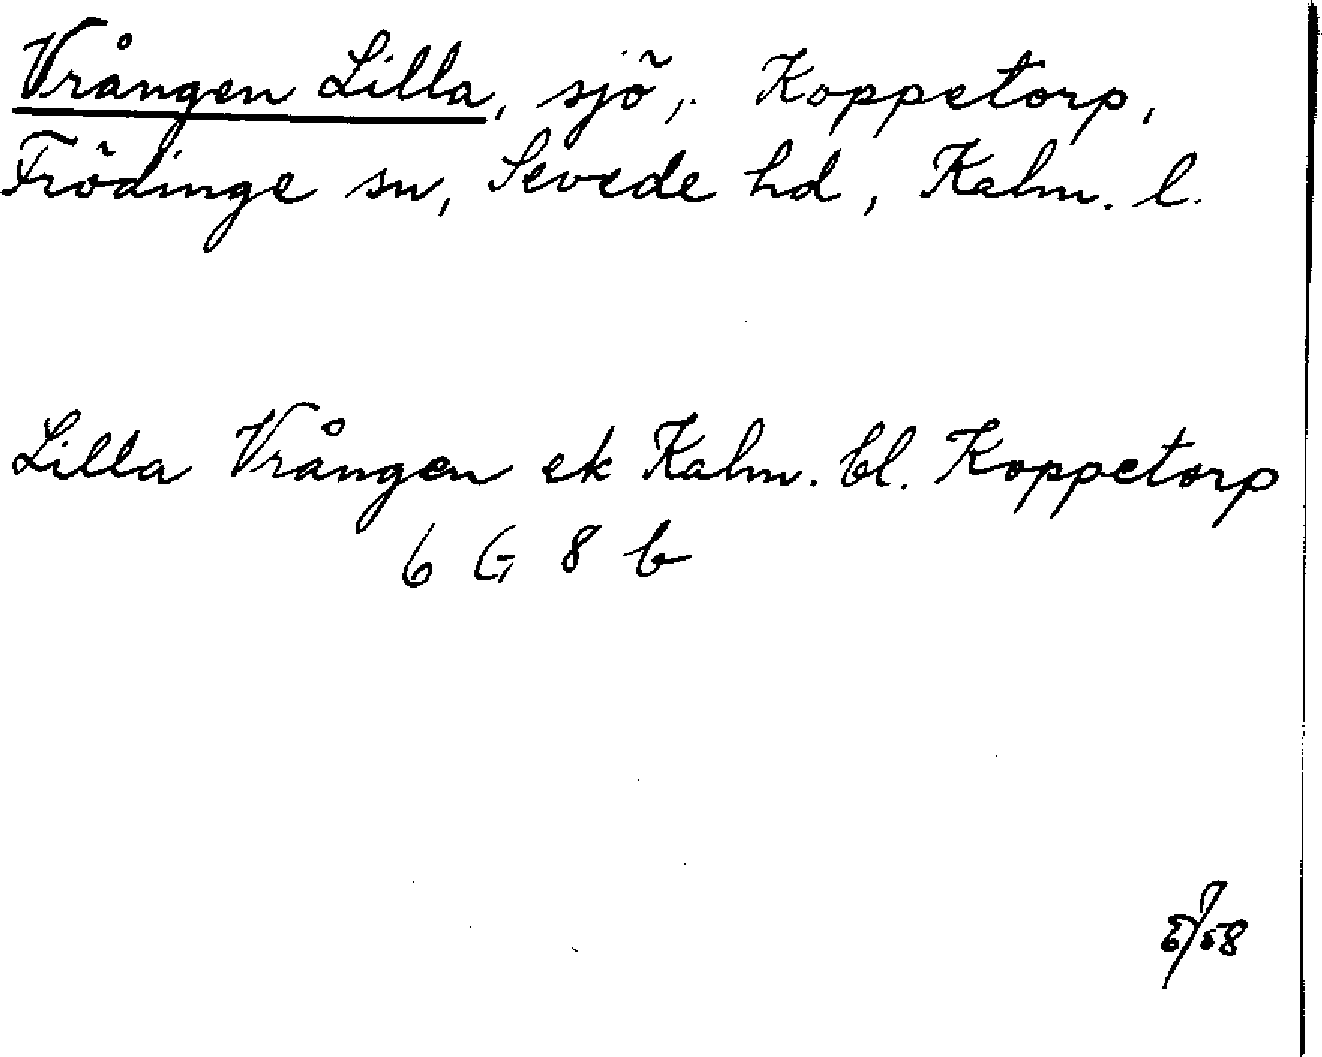 Vrången Lilla, sjö, Koppetorp,
Frödinge sn, Sevede hd, Kalm. l.
Lilla Vrången ek Kalm. bl. Koppetorp
6 G 8 b